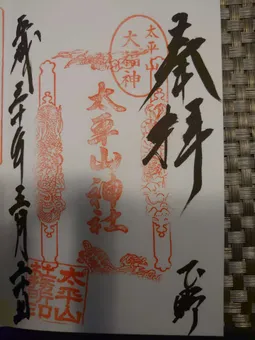 奉拝
下野
太平山
大福神
太平山神社
太平山
社務所印
平成三十年三月